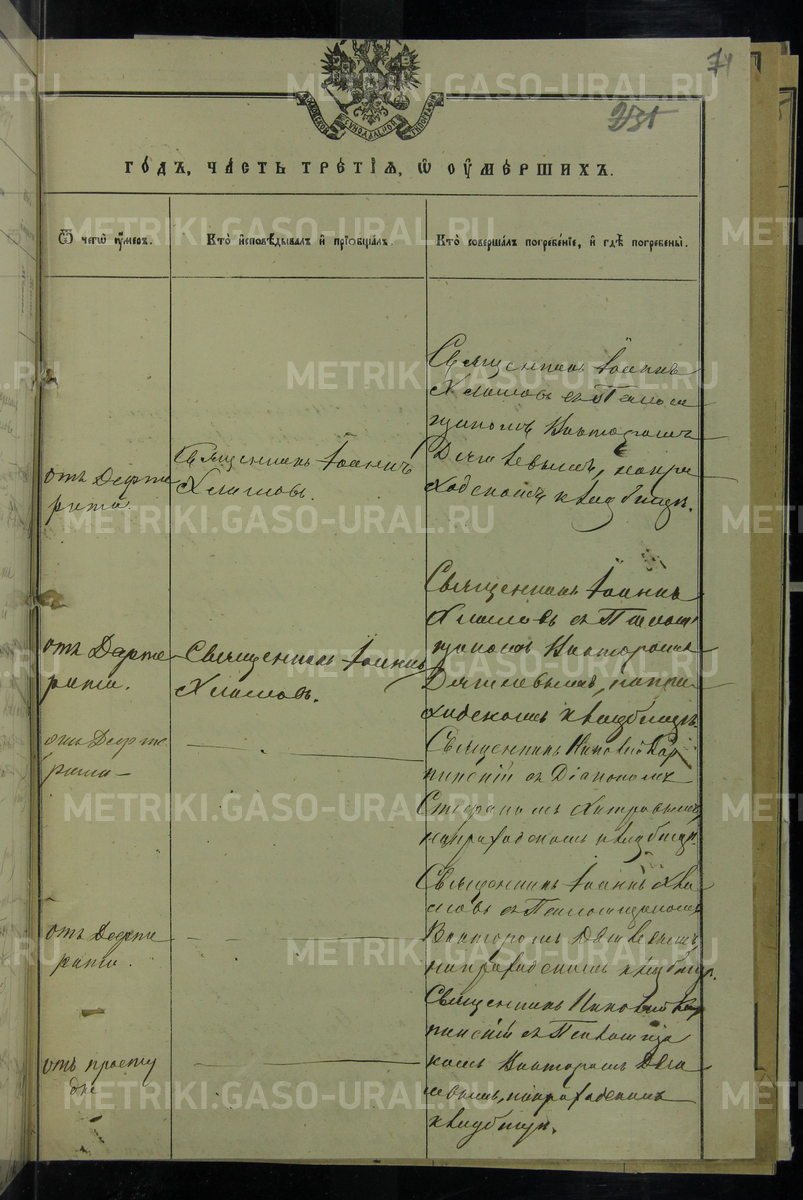 71
235
ГО́ДЪ, ЧА́СТЬ ТРЕ́ТІѦ, Ѡ҆ ОУ҆МЕ́РШИХЪ.
Ѿ чегѡ̀ ᲂу҆́меръ.
Кто̀ и҆сповѣ́дывалъ и҆ прїѡбща́лъ.
Кто̀ соверша́лъ погребе́нїе, и҆ гдѣ̀ погребены̀.
отъ Дефте
рита.
Священникъ Іоаннъ
Хламовъ.
Священникъ Іоаннъ
Хламовъ съ Псалом
щикомъ Викторомъ
Дягилевымъ, на при
ходскомъ кладбищѣ.
отъ Дефте
рита.
Священникъ Іоаннъ
Хламовъ.
Священникъ Іоаннъ
Хламовъ съ Псалом
щикомъ Викторомъ
Дягилевымъ, на при
ходскомъ кладбищѣ.
отъ Дефте
рита –
Священникъ
съ Діакономъ
Стефаномъ
на приходскомъ кладбищѣ.
отъ Дефте
рита.
Священникъ Іоаннъ Хла
мовъ съ Псаломщикомъ
Викторомъ Дягилевымъ,
на приходскомъ кладбищѣ.
отъ просту
ды
Священникъ
съ Псаломщи
комъ Викторомъ Дяги
левымъ, на приходскомъ
кладбищѣ.
METRIKI.GASO-URAL.RU